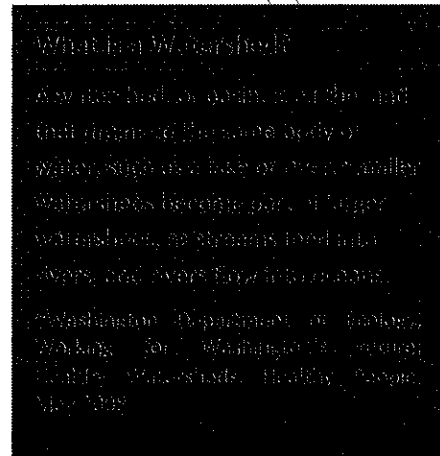 What is a Watershed?
A watershed, or basin, is all the land
that drains to the same body of
water, such as a lake or river. Smaller
watersheds become part of larger
watersheds, as streams feed into
rivers, and rivers flow into oceans.
Washington Department of Ecology,
Working for Washington's
Healthy Watersheds, Healthy People,
May